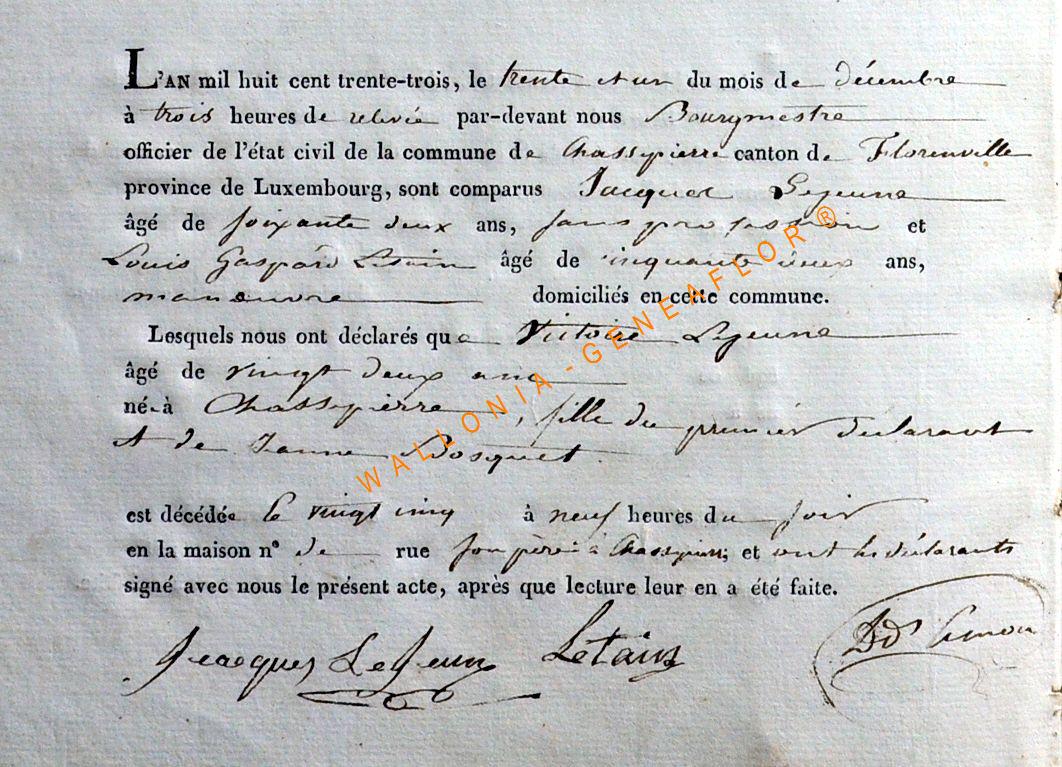 L'AN mil huit cent trente-trois, le trente et un du mois de décembre
à trois heures de relevée par-devant nous Bourgmestre
officier de l'état civil de la commune de Chassepierre canton de Florenville
province de Luxembourg, sont comparus Jacques Lejeune
âgé de soixante deux ans, sans profession et
Louis Gaspard Letain âgé de cinquante deux ans,
manœuvre domiciliés en cette commune.
Lesquels nous ont déclarés que Victoire Lejeune
âgé de vingt deux ans
né à Chassepierre, fille du premier déclarant
et de Jeanne Bosquet.
est décédée le vingt cinq à neuf heures du soir
en la maison n° de rue son père à Chassepierre; et ont les déclarants
signé avec nous le présent acte, après que lecture leur en a été faite.
Jeacques LeJeune Letain
WALLONIA-GENEAFLOR®